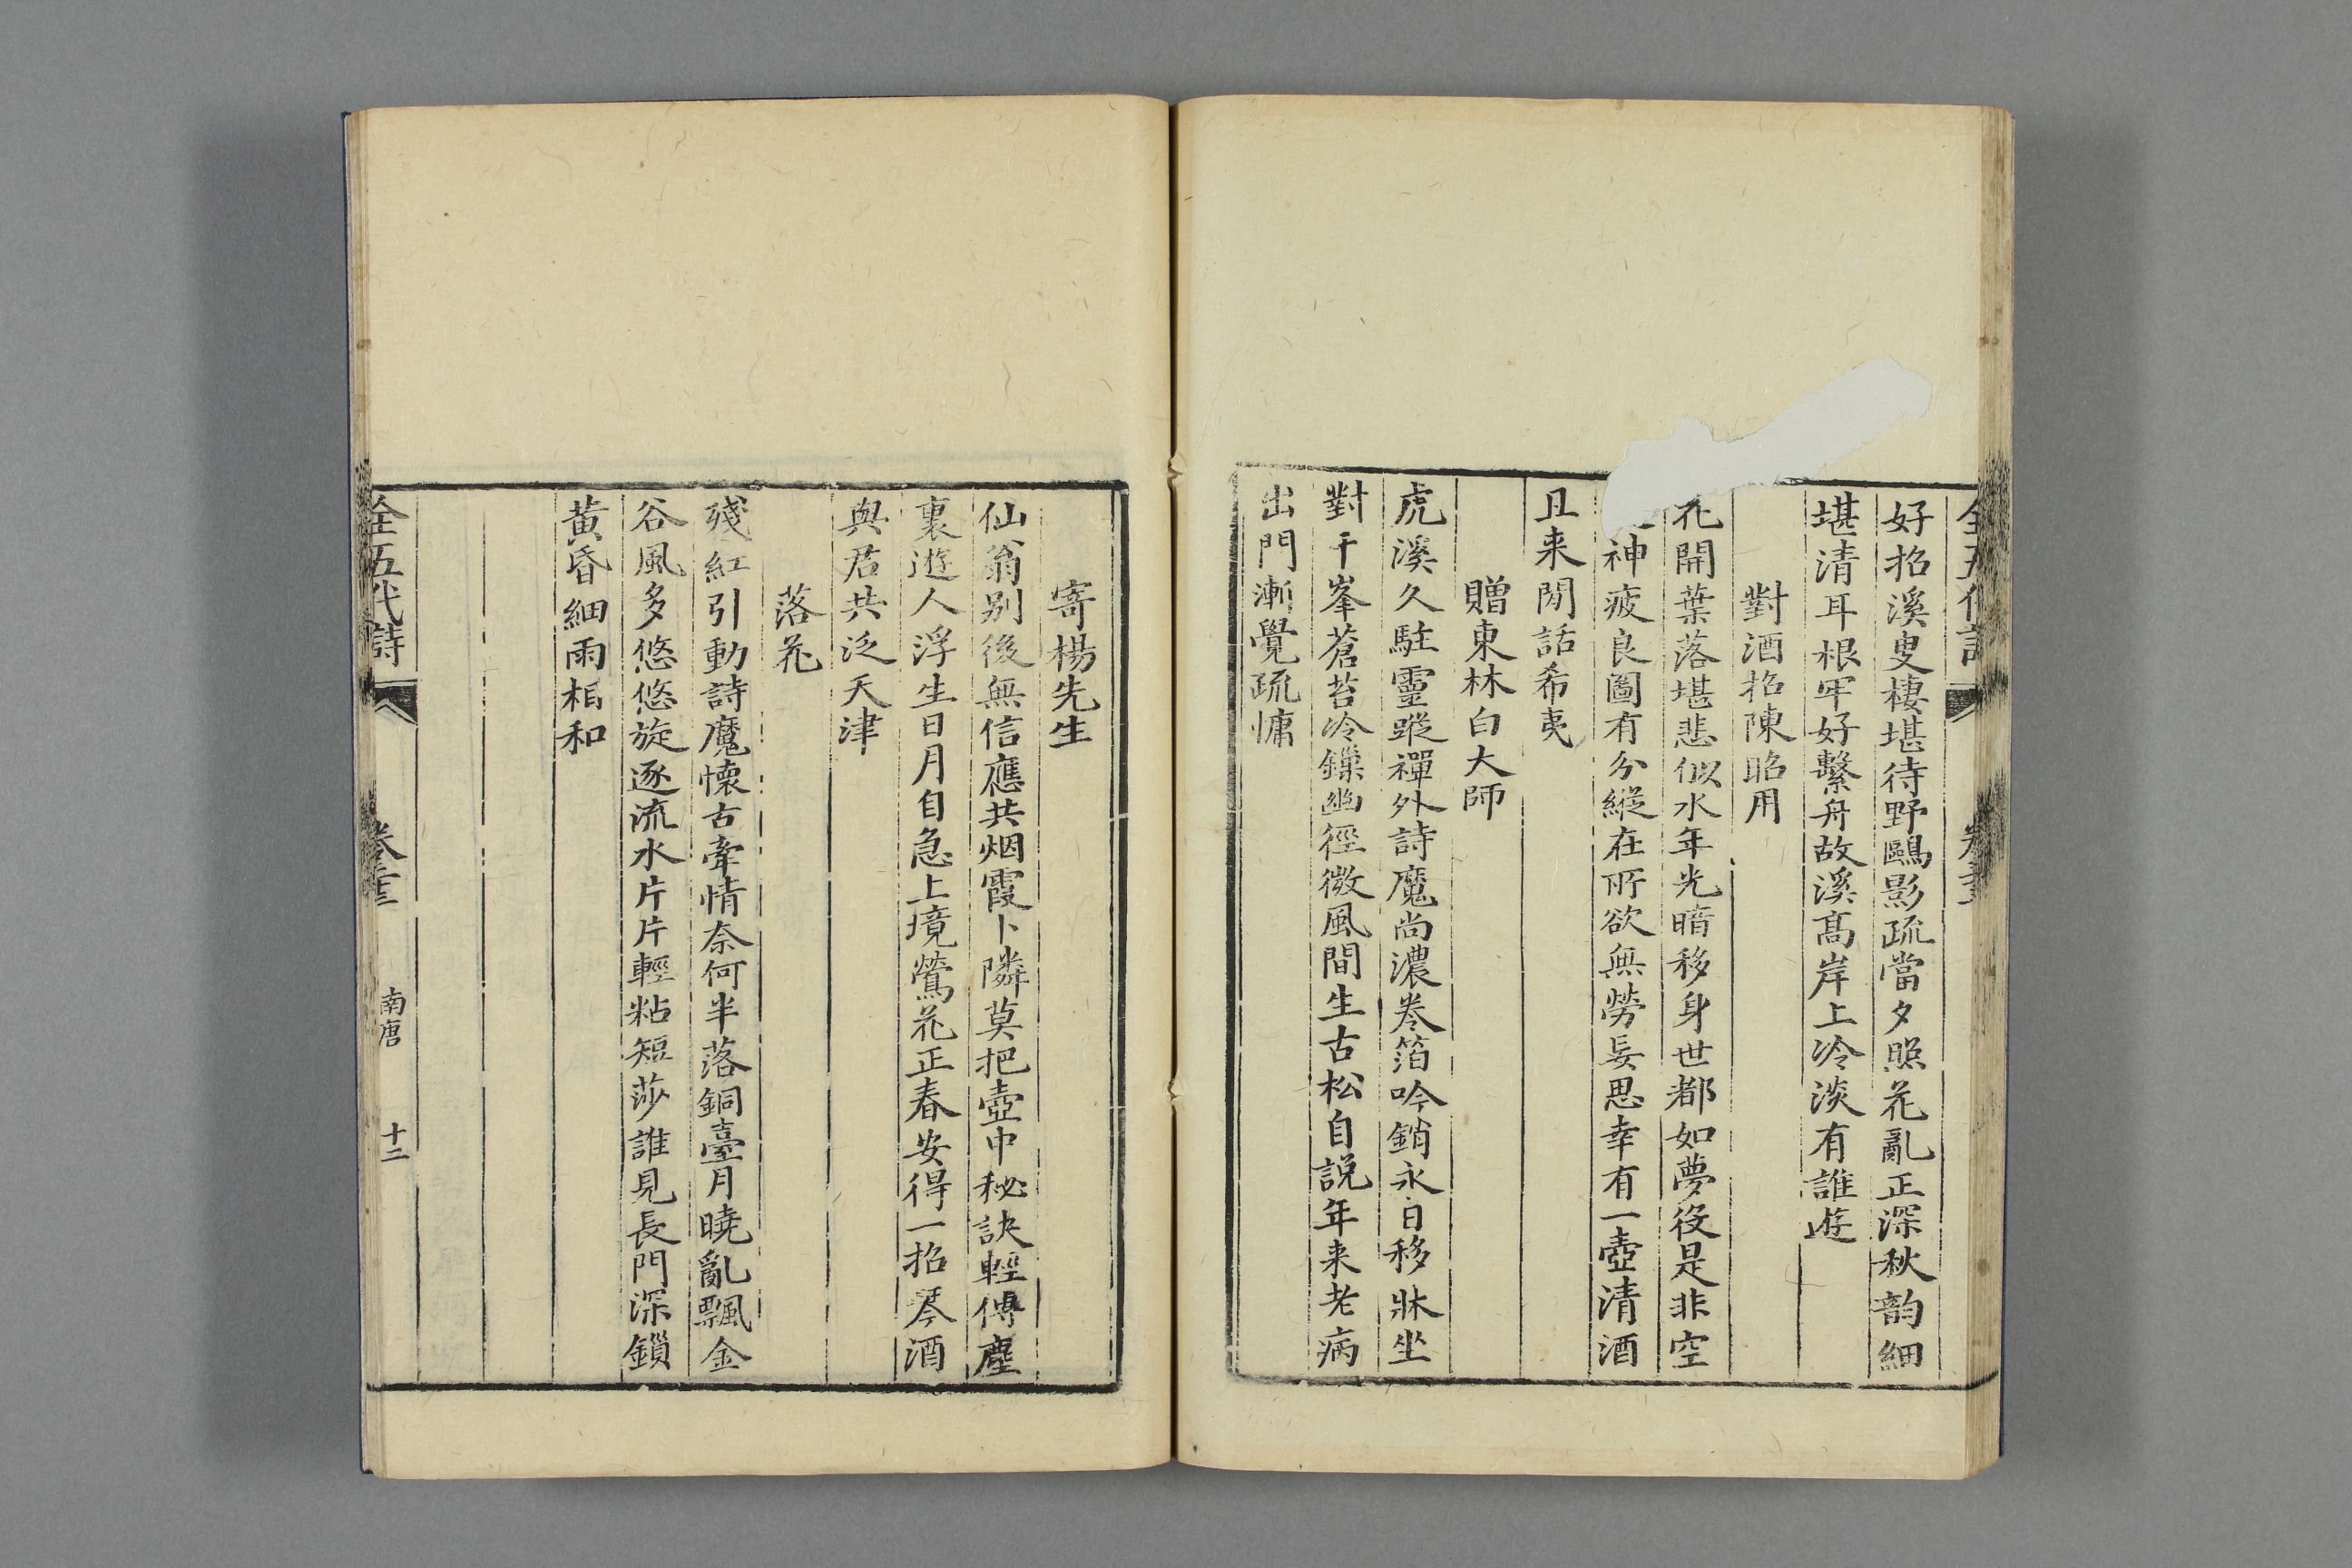 好招溪叟棲堪待野鷗影疏當夕照花亂正深秋韵細
堪清耳根牢好繫舟故溪髙岸上冷淡有誰遊
對酒招陳昭用
花開葉落堪悲似水年光暗移身世都如夢役是非空
神疲良圖有分縱在所欲無勞妄思幸有一壺清酒
且来閒話希夷
贈東林白大師
虎溪久駐靈蹤禪外詩魔尚濃卷箔吟銷永日移牀坐
對千峯蒼苔冷鏁幽徑微風間生古松自説年来老病
出門漸覺疏慵
寄楊先生
仙翁别後無信應共烟霞卜隣莫把壺中秘訣輕傳塵
裏遊人浮生日月自急上境鶯花正春安得一招琴酒
與君共泛天津
落花
殘紅引動詩魔懷古牽情奈何半落銅臺月曉亂飄金
谷風多悠悠旋逐流水片片輕粘短莎誰見長門深鎖
黄昏細雨相和
全五代詩
南唐
十二